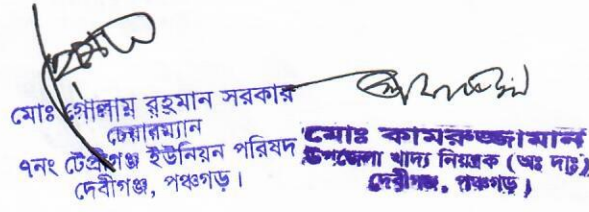 মোঃ গোলাম রহমান সরকার
চেয়ারম্যান
৭নং টেপ্রীগঞ্জ ইউনিয়ন পরিষদ
দেবীগঞ্জ, পঞ্চগড়।
মোঃ কামরুজ্জামান
উপজেলা খাদ্য নিয়ন্ত্রক (অঃ দাঃ)
দেবীগঞ্জ, পঞ্চগড়।